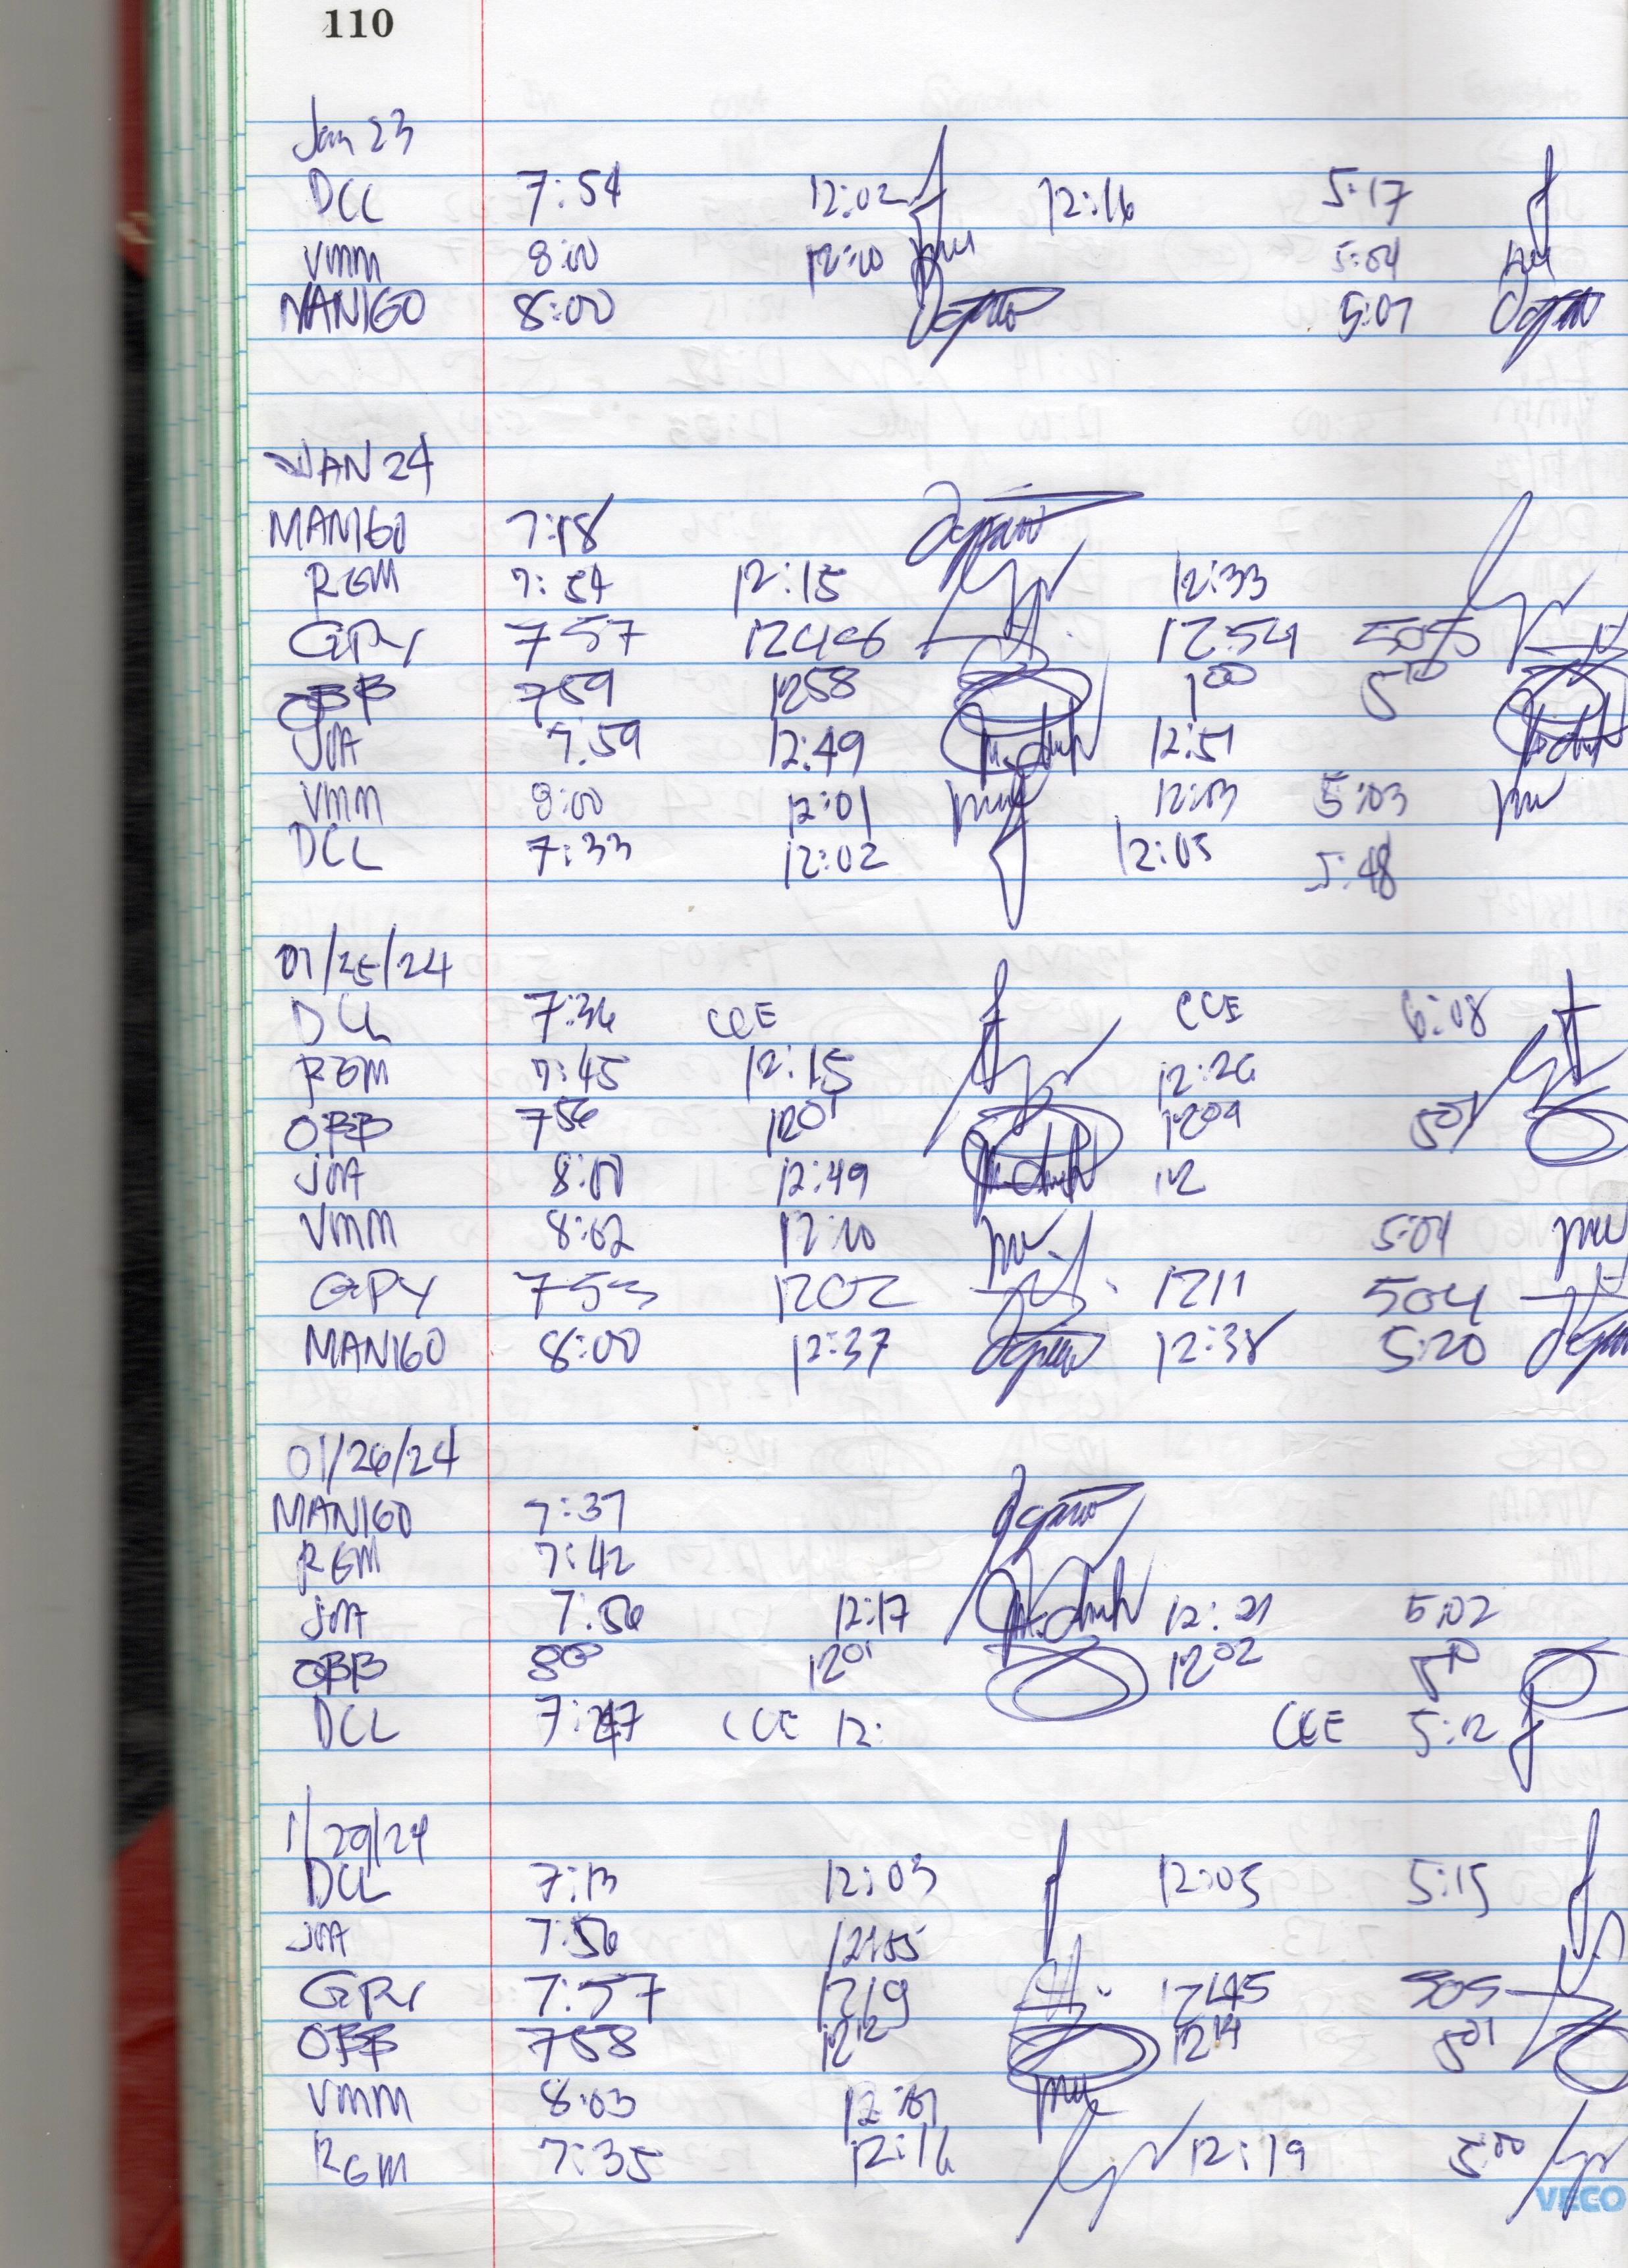 110
Jan 23
DCL 7:54 12:02 12:16 5:17
VMM 8:00 12:10 5:04
MANIGO 8:00 5:07
JAN 24
MANIGO 7:18
RGM 7:54 12:15 12:33
GPY 757 12446 1254 505
OBB 759 1258 1 00 5 10
JMA 7.59 12:49 12:51
VMM 8:00 12:01 12:03 5:03
DCL 7:33 12:02 12:05 5:48
01/25/24
DCL 7:36 CCE CCE 6:08
RGM 7:45 12:15 12:26
OBB 7 56 12 01 1209 5 01
JMA 8:00 12:49 12
VMM 8:02 12:10 5:04
GPY 753 1202 1211 504
MANIGO 8:00 12:37 12:38 5:20
01/26/24
MANIGO 7:37
RGM 7:42
JMA 7:56 12:17 12:21 5:02
OBB 8 00 12 01 12 02 5 10
DCL 7:47 CCE 12: CCE 5:12
1/29/24
DCL 7:13 12:03 12:05 5:15
JMA 7:56 12:55
GPY 7:57 1219 1245 505
OBB 758 12 12 12 14 5 01
VMM 8:03 12:07
RGM 7:35 12:16 12:19 5 00
VECO